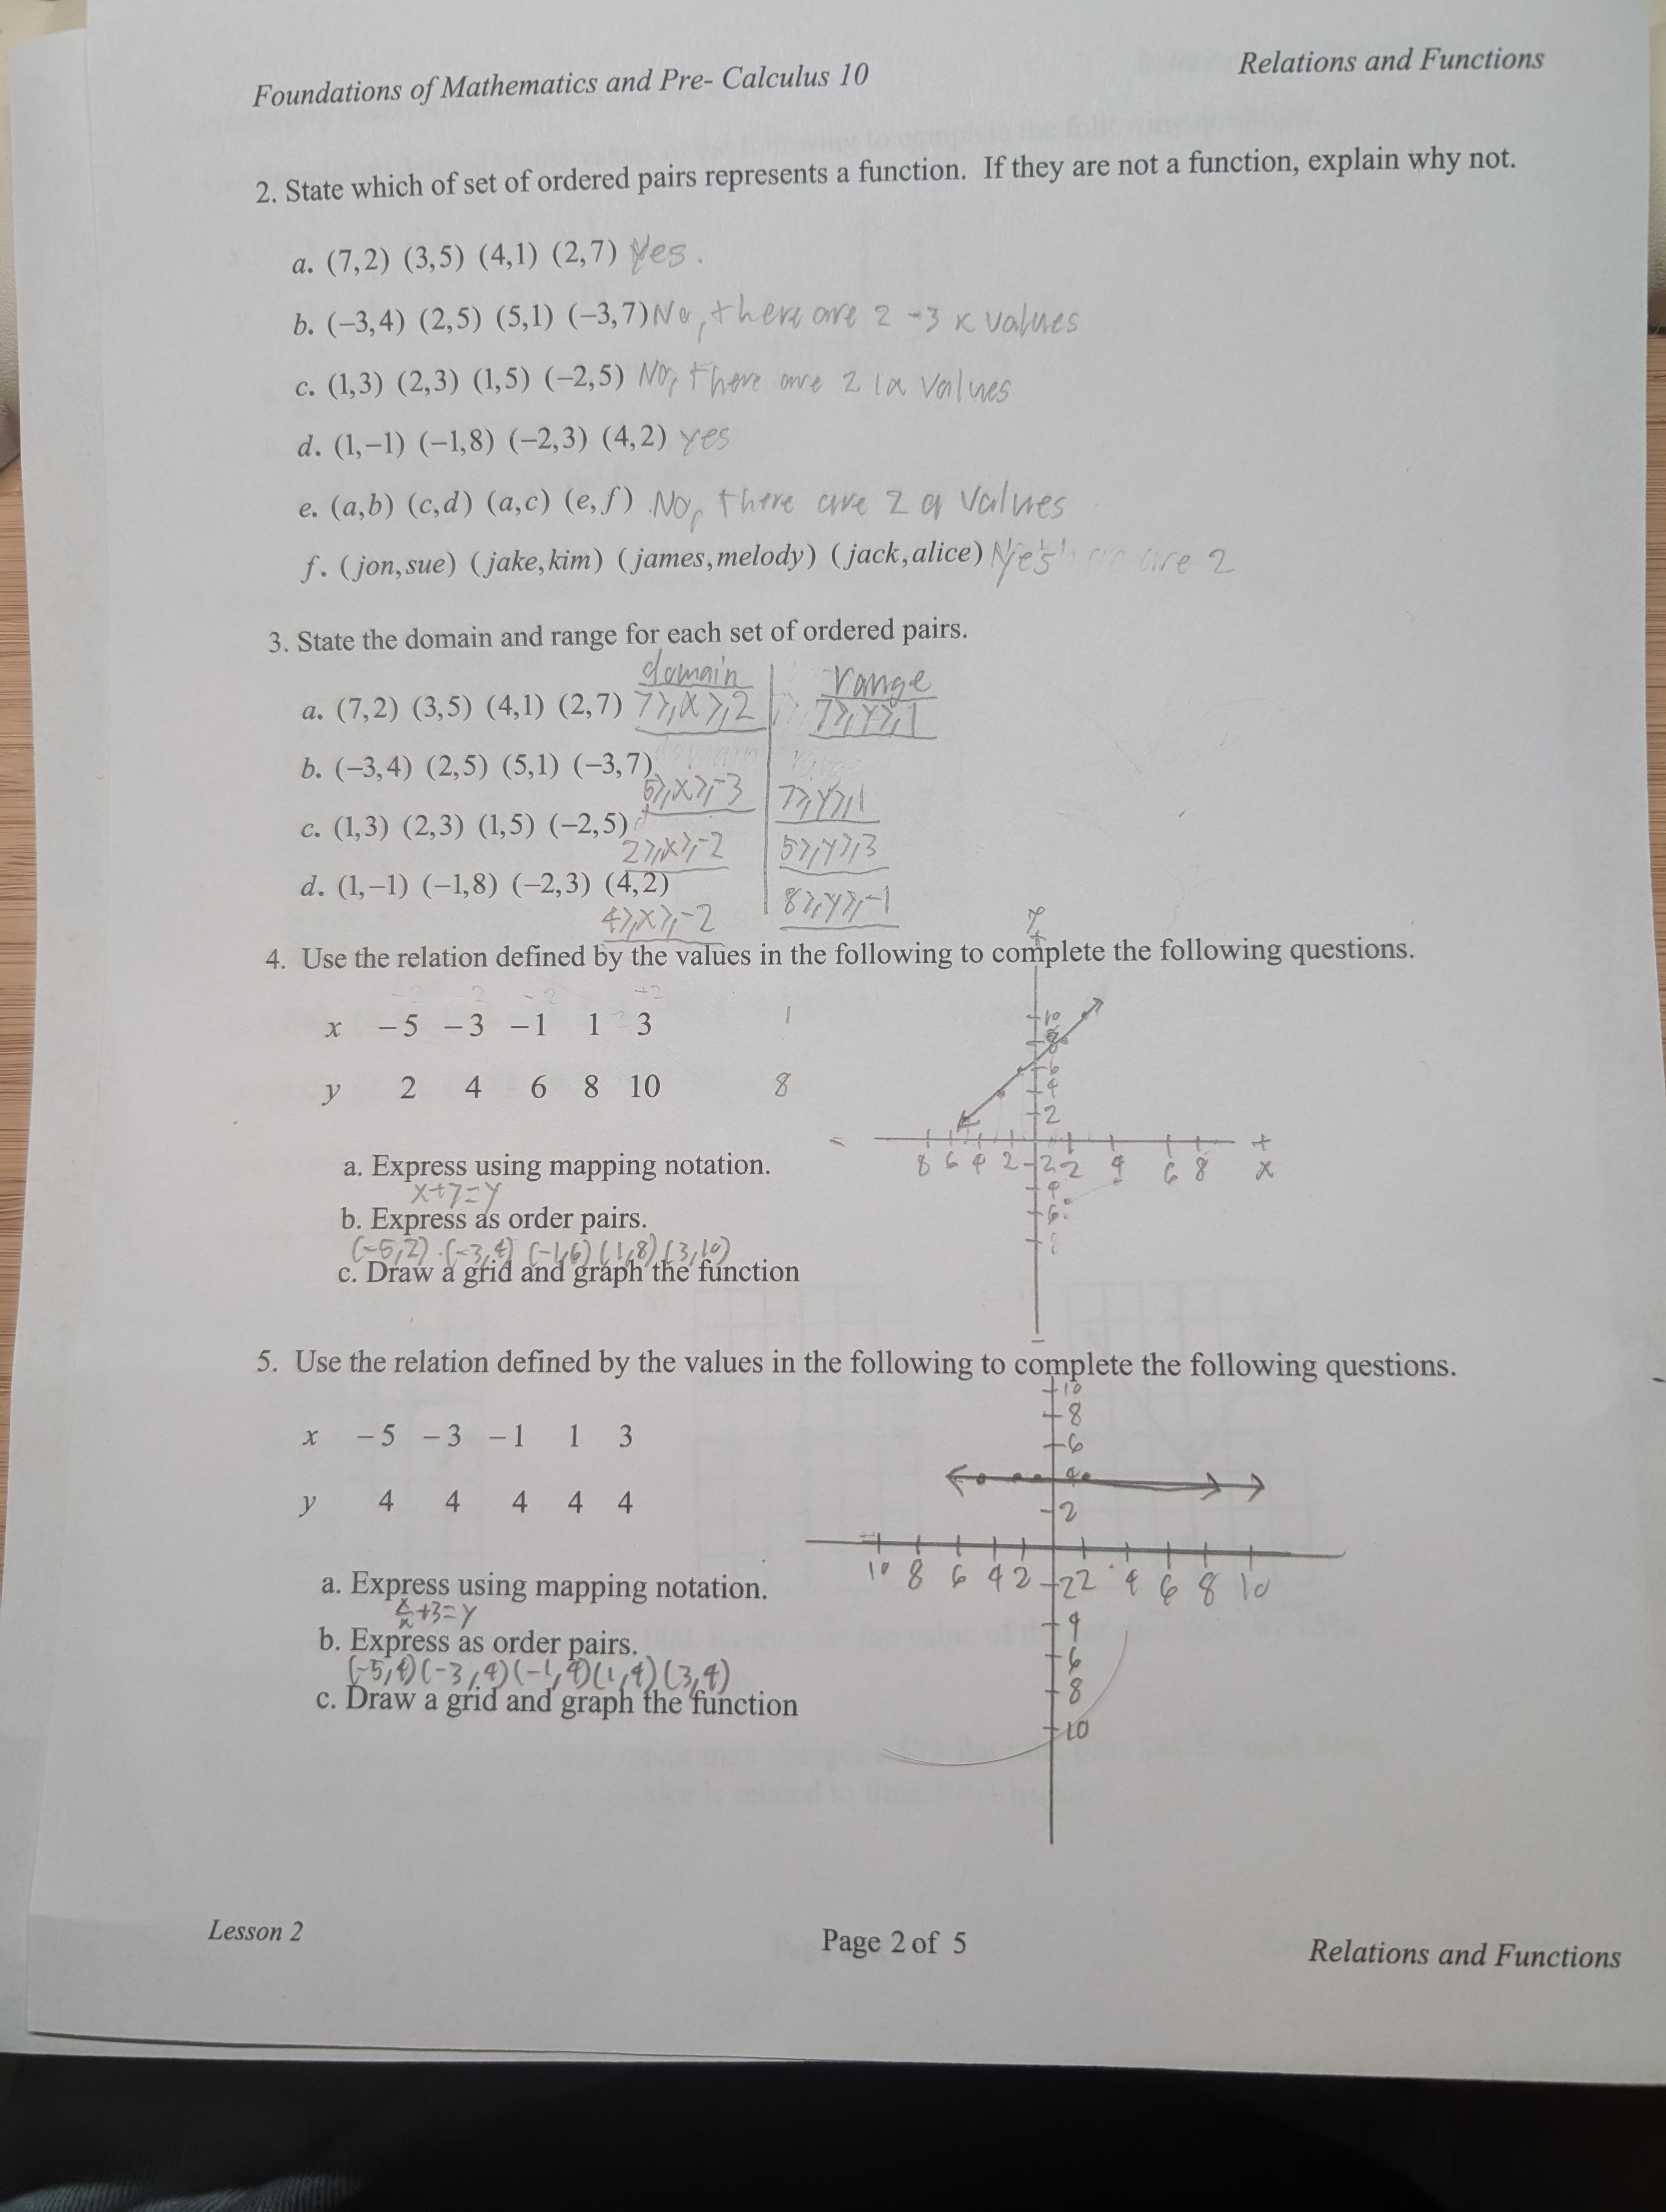 Foundations of Mathematics and Pre- Calculus 10
Relations and Functions
2. State which of set of ordered pairs represents a function. If they are not a function, explain why not.
a. (7,2) (3,5) (4,1) (2,7) Yes.
b. (−3,4) (2,5) (5,1) (−3,7) No, there are 2 -3 x values
c. (1,3) (2,3) (1,5) (−2,5) No, there are 2 1x values
d. (1,−1) (−1,8) (−2,3) (4,2) yes
e. (a,b) (c,d) (a,c) (e,f) No, there are 2 a values
f. (jon,sue) (jake,kim) (james,melody) (jack,alice) Yes are 2
3. State the domain and range for each set of ordered pairs.
domain range
a. (7,2) (3,5) (4,1) (2,7) 7≥x≥2 7≥y≥1
b. (−3,4) (2,5) (5,1) (−3,7)
5≥x≥-3 7≥y≥1
c. (1,3) (2,3) (1,5) (−2,5)
2≥x≥-2 5≥y≥3
d. (1,−1) (−1,8) (−2,3) (4,2)
4≥x≥-2 8≥y≥-1
4. Use the relation defined by the values in the following to complete the following questions.
x −5 −3 −1 1 3 1
y 2 4 6 8 10 8
a. Express using mapping notation.
x+7=y
b. Express as order pairs.
(-5,2) (-3,4) (-1,6) (1,8) (3,10)
c. Draw a grid and graph the function
y
+
10
8
6
4
2
- 8 6 4 2 -2 2 4 6 8 + x
4
6
8
-
5. Use the relation defined by the values in the following to complete the following questions.
x −5 −3 −1 1 3
y 4 4 4 4 4
a. Express using mapping notation.
x/x+3=y
b. Express as order pairs.
(-5,4)(-3,4)(-1,4)(1,4)(3,4)
c. Draw a grid and graph the function
10
8
6
4
2
10 8 6 4 2 -2 2 4 6 8 10
4
6
8
10
Lesson 2
Page 2 of 5
Relations and Functions